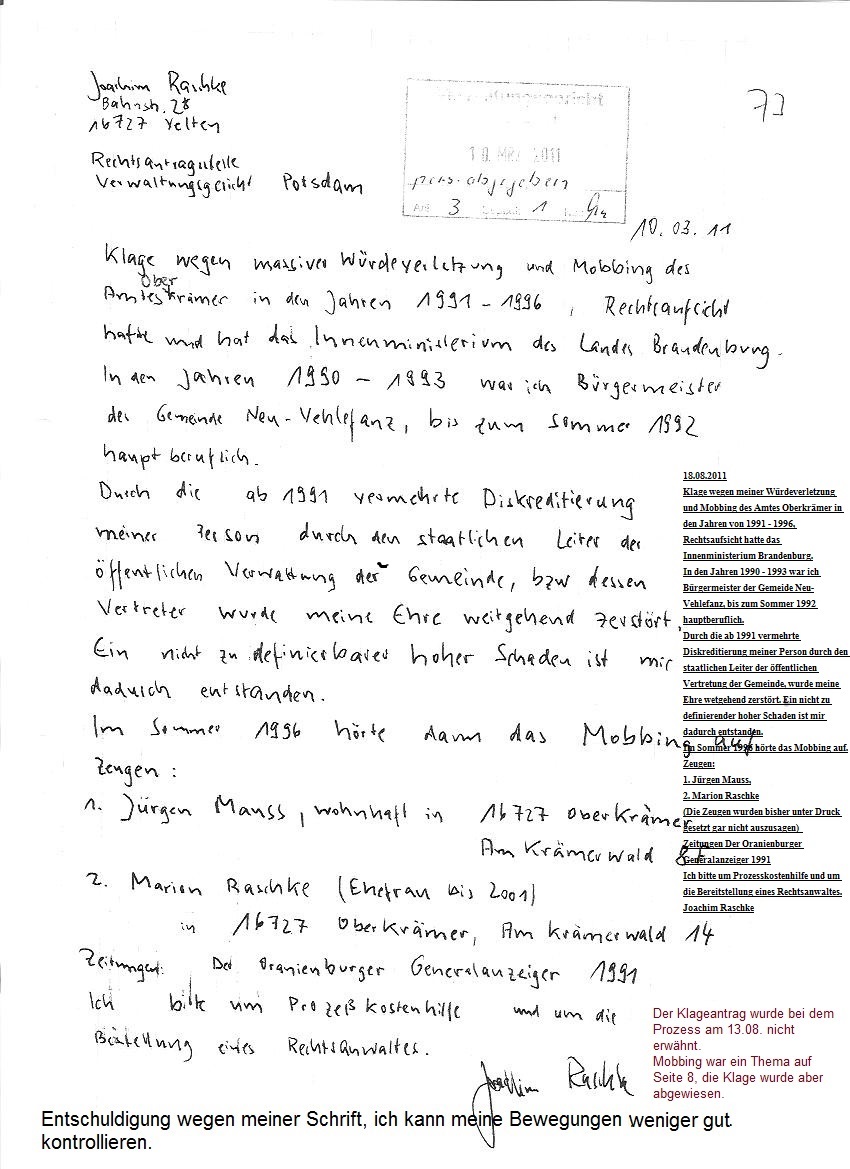 Joachim Raschke
Bahnstr. 28
16727 Velten
73
Rechtsantragstelle
Verwaltungsgericht Potsdam
10. MRZ. 2011
pers. abgegeben
3 1
10.03.11
Klage wegen massiver Würdeverletzung und Mobbing des
Ober
Amteskrämer in den Jahren 1991 - 1996, Rechtsaufsicht
hatte und hat das Innenministerium des Landes Brandenburg.
In den Jahren 1990 - 1993 war ich Bürgermeister
der Gemeinde Neu-Vehlefanz, bis zum Sommer 1992
hauptberuflich.
Durch die ab 1991 vermehrte Diskreditierung
meiner Person durch den staatlichen Leiter der
öffentlichen Verwaltung der Gemeinde, bzw dessen
Vertreter wurde meine Ehre weitgehend zerstört.
Ein nicht zu definierbarer hoher Schaden ist mir
dadurch entstanden.
Im Sommer 1996 hörte dann das Mobbing auf
Zeugen:
1. Jürgen Mauss, wohnhaft in 16727 Oberkrämer
Am Krämerwald
2. Marion Raschke (Ehefrau bis 2001)
in 16727 Oberkrämer, Am Krämerwald 14
Zeitungen: Der Oranienburger Generalanzeiger 1991
Ich bitte um Prozeßkostenhilfe und um die
Bestellung eines Rechtsanwaltes.
Joachim Raschke
18.08.2011
Klage wegen meiner Würdeverletzung
und Mobbing des Amtes Oberkrämer in
den Jahren von 1991 - 1996,
Rechtsaufsicht hatte das
Innenministerium Brandenburg.
In den Jahren 1990 - 1993 war ich
Bürgermeister der Gemeide Neu-
Vehlefanz, bis zum Sommer 1992
hauptberuflich.
Durch die ab 1991 vermehrte
Diskreditierung meiner Person durch den
staatlichen Leiter der öffentlichen
Vertretung der Gemeinde, wurde meine
Ehre wetgehend zerstört. Ein nicht zu
definierender hoher Schaden ist mir
dadurch entstanden.
Im Sommer 1996 hörte das Mobbing auf.
Zeugen:
1. Jürgen Mauss,
2. Marion Raschke
(Die Zeugen wurden bisher unter Druck
gesetzt gar nicht auszusagen)
Zeitungen Der Oranienburger
Generalanzeiger 1991
Ich bitte um Prozesskostenhilfe und um
die Bereitstellung eines Rechtsanwaltes.
Joachim Raschke
Der Klageantrag wurde bei dem
Prozess am 13.08. nicht
erwähnt.
Mobbing war ein Thema auf
Seite 8, die Klage wurde aber
abgewiesen.
Entschuldigung wegen meiner Schrift, ich kann meine Bewegungen weniger gut
kontrollieren.